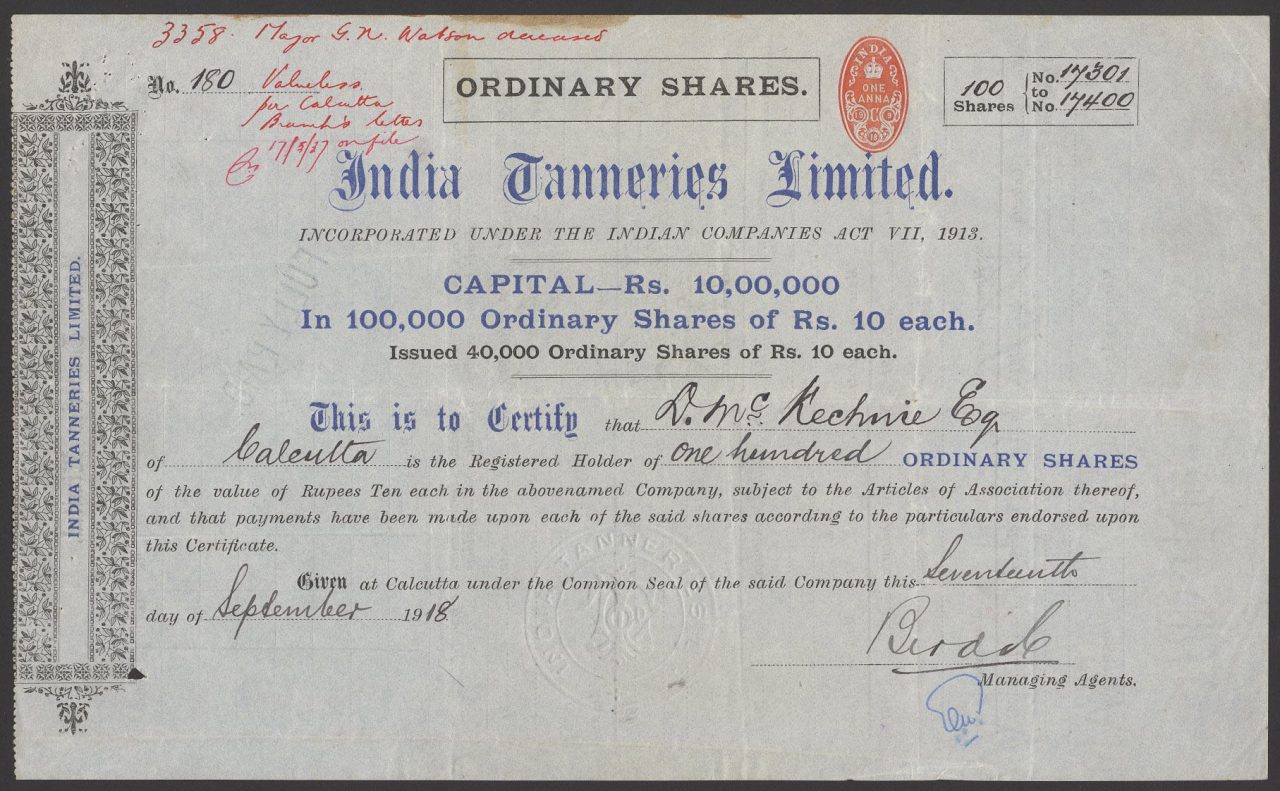 3358. Major G. N. Watson deceased
No. 180
Valueless
per Calcutta
Branch's letter
17/5/27 on file
ORDINARY SHARES.
INDIA
ONE
ANNA
100
Shares
No. 17301
to
No. 17400
India Tanneries Limited.
INCORPORATED UNDER THE INDIAN COMPANIES ACT VII, 1913.
CAPITAL—Rs. 10,00,000
In 100,000 Ordinary Shares of Rs. 10 each.
Issued 40,000 Ordinary Shares of Rs. 10 each.
FULLY PAID
This is to Certify that D. McKechnie Esq
of Calcutta is the Registered Holder of one hundred ORDINARY SHARES
of the value of Rupees Ten each in the abovenamed Company, subject to the Articles of Association thereof,
and that payments have been made upon each of the said shares according to the particulars endorsed upon
this Certificate.
Given at Calcutta under the Common Seal of the said Company this Seventeenth
day of September 1918
Managing Agents.
INDIA TANNERIES LIMITED.
INDIA TANNERIES